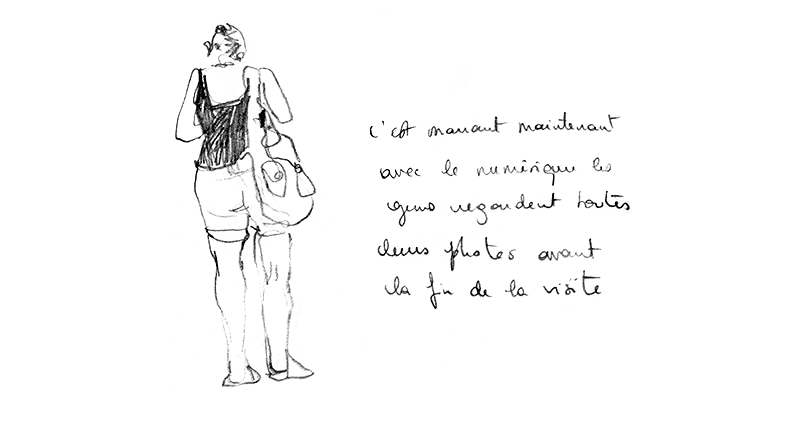 c'est marrant maintenant
avec le numérique les
gens regardent toutes
leurs photos avant
la fin de la visite